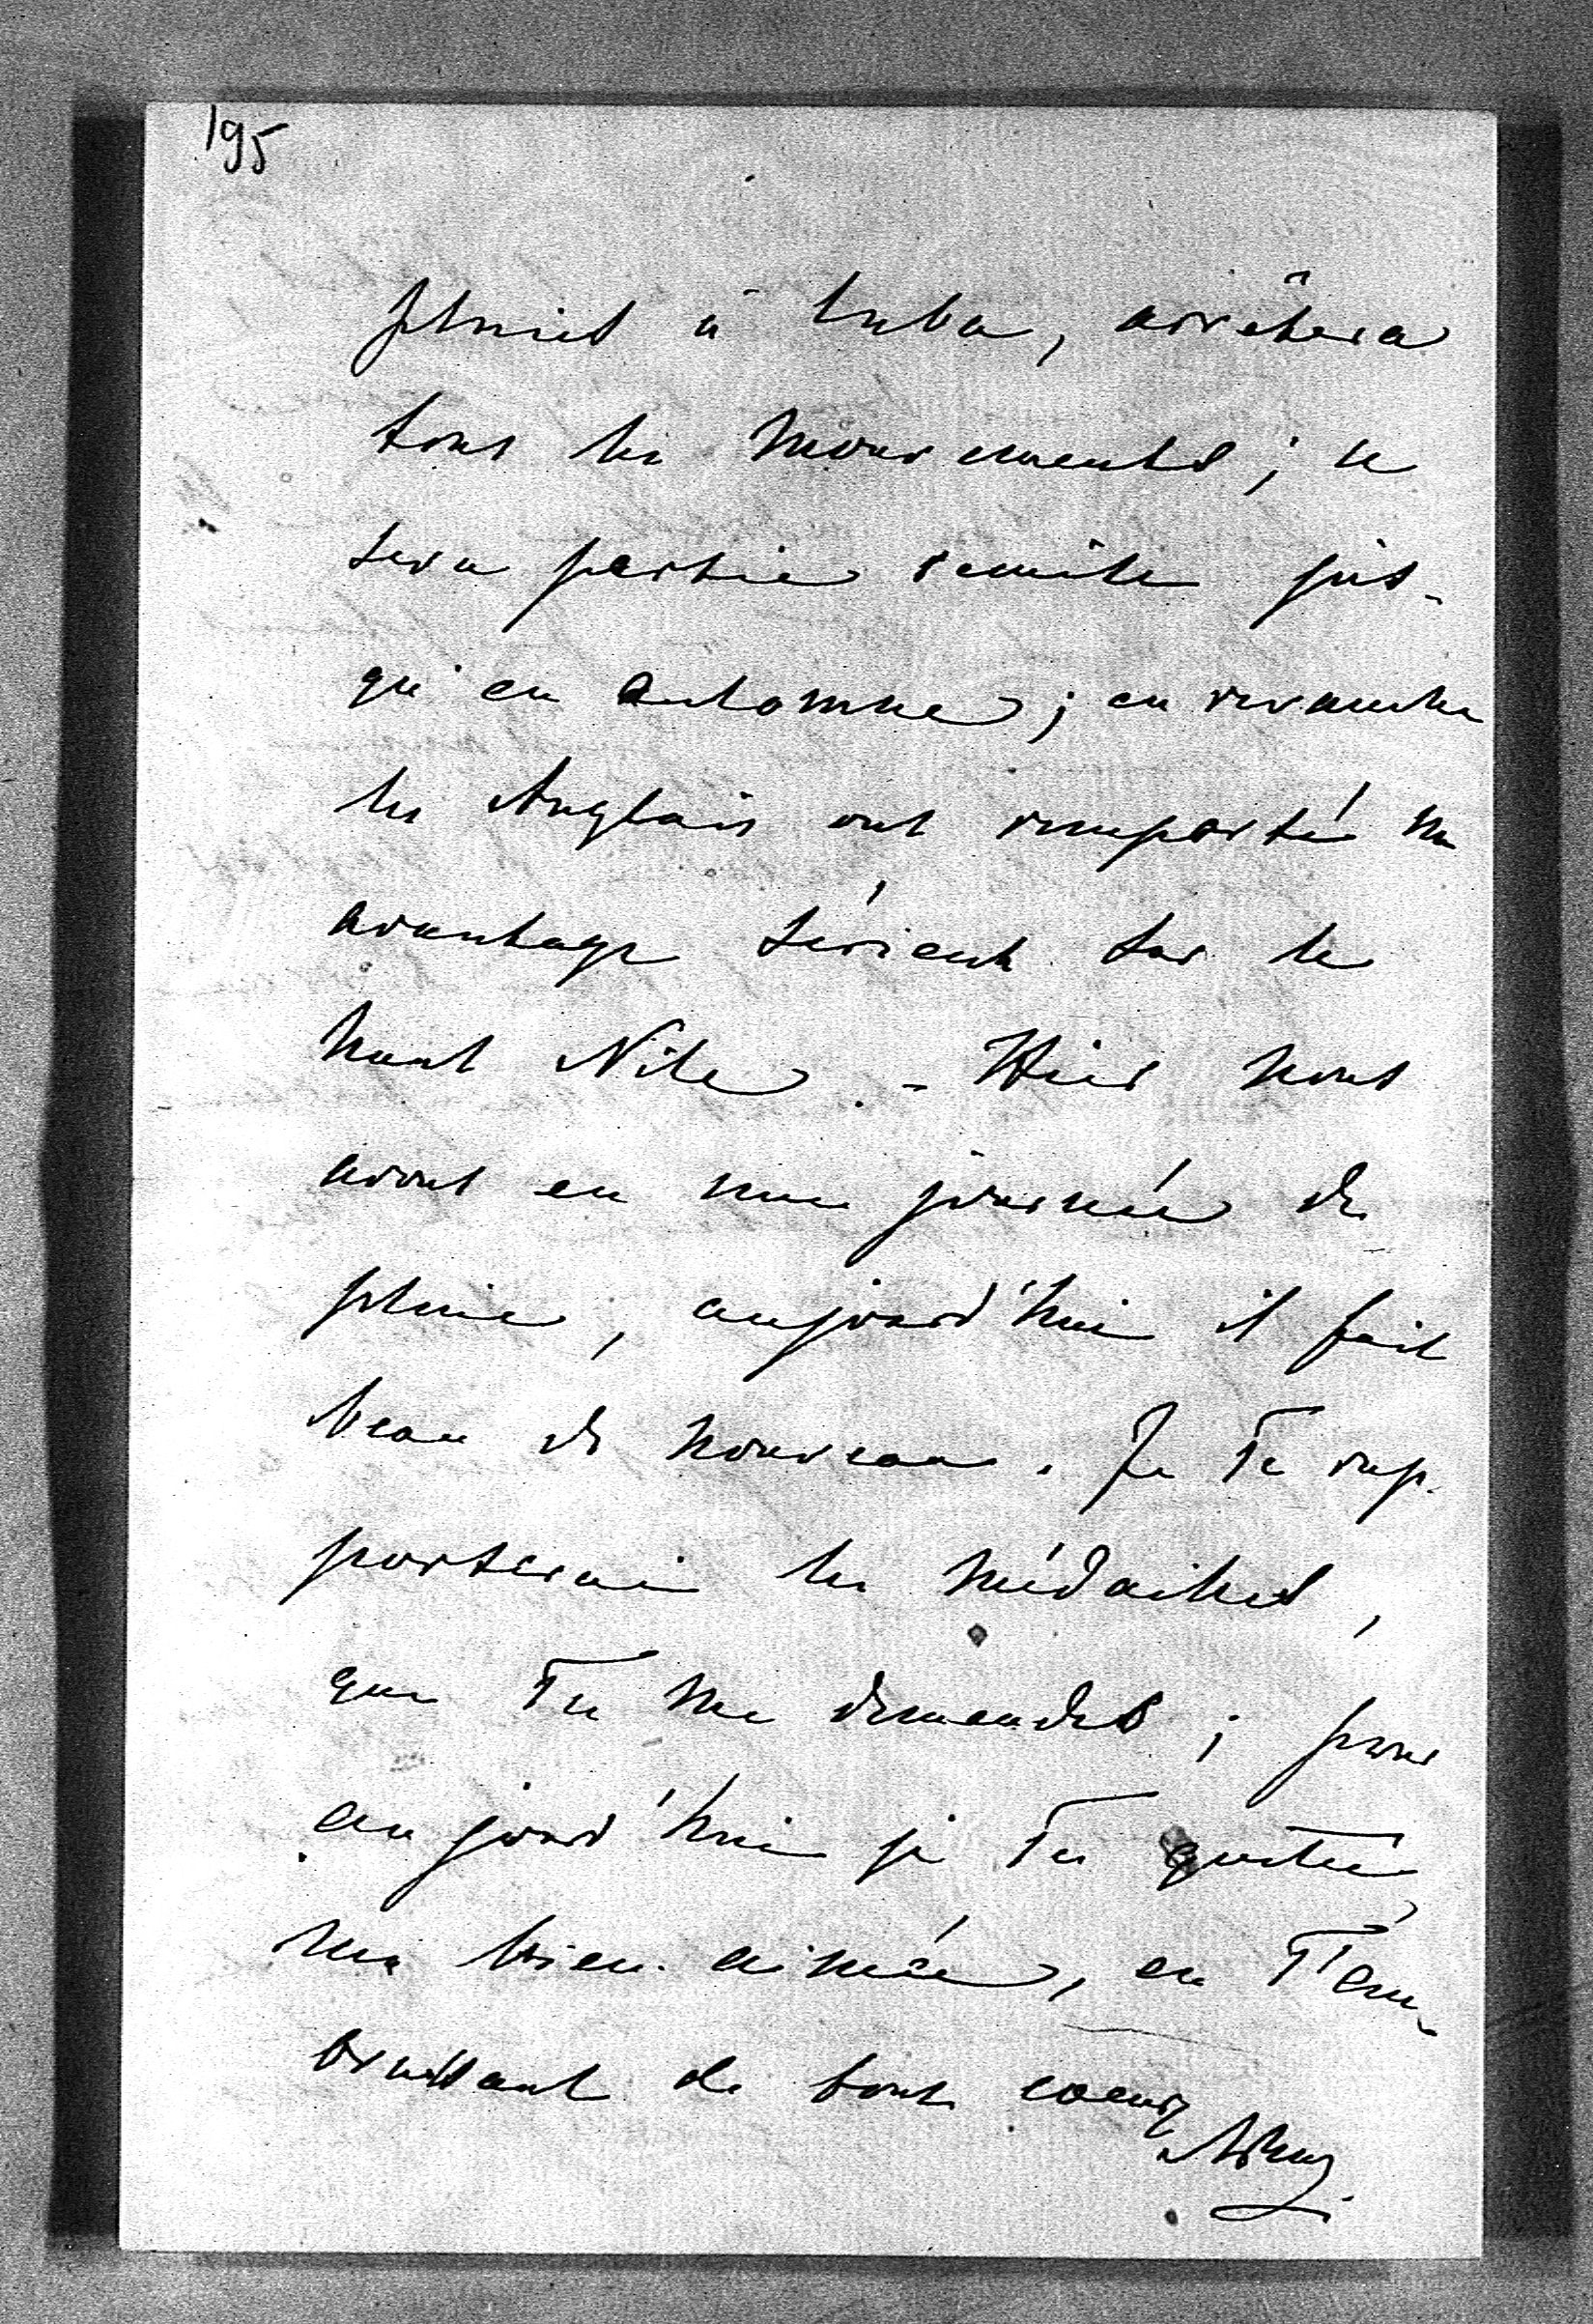 195
pluies à Cuba, arrêtera
tous les mouvements ; ce
sera partie remise jus-
qu'en automne ; en revanche
les Anglais ont remporté un
avantage sérieux sur le
haut Nile. - Hier nous
avons eu une journée de
pluie, aujourd'hui il fait
beau de nouveau. Je Te rap-
porterai les médailles,
que Tu me demandes ; pour
aujourd'hui je Te quitte,
ma bien-aimée, en T'em-
brassant de tout coeur